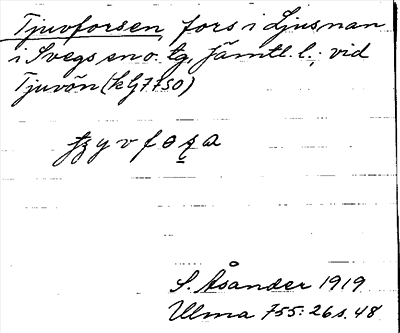 Tjuvforsen, fors i Ljusnan
i Svegs sn o. tg, Jämtl. l.; vid
Tjuvön (kG7750)
S. Åsander 1919
Ulma 755: 26 s. 48